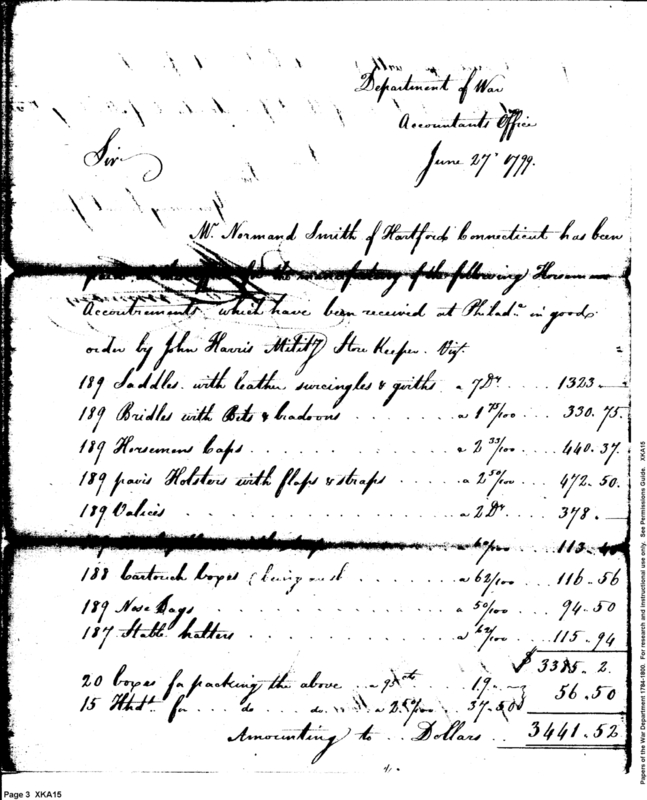 Department of War
Accountants Office
June 27th 1799.
Sir
Mr. Normand Smith of Hartford Connecticut has been
for the manufactory of the following Horsemens
Accoutrements which have been received at Philada. in good
order by John Harris Mility Store Keeper. Viz.
189 Saddles with leather surcingles & girths a 7 Drs ... 1323.—
189 Bridles with Bits & bradoons ....... a 1 75/100 .... 330.75.
189 Horsemens Caps ............ a 2 33/100 .... 440.37.
189 pairs Holsters with flaps & straps ..... a 2 50/100 ... 472-50.
189 Valices ............ a 2 Drs .... 378.—
a 60/100 ... 113.40
188 Cartouch boxes ....... a 62/100 ... 116-56
189 Nose Bags ............ a 50/100 .... 94-50
187 Stable halters .......... a 62/100 ... 115-94
$ 3385.2.
20 boxes for packing the above .. a 95 cts 19.—
56.50
15 Hhds. for .... do .... do .. a 2 50/100 .. 37-50
Amounting to .. Dollars .... 3441.52
Page 3 XKA15
Papers of the War Department 1784-1800. For research and instructional use only. See Permissions Guide. XKA15